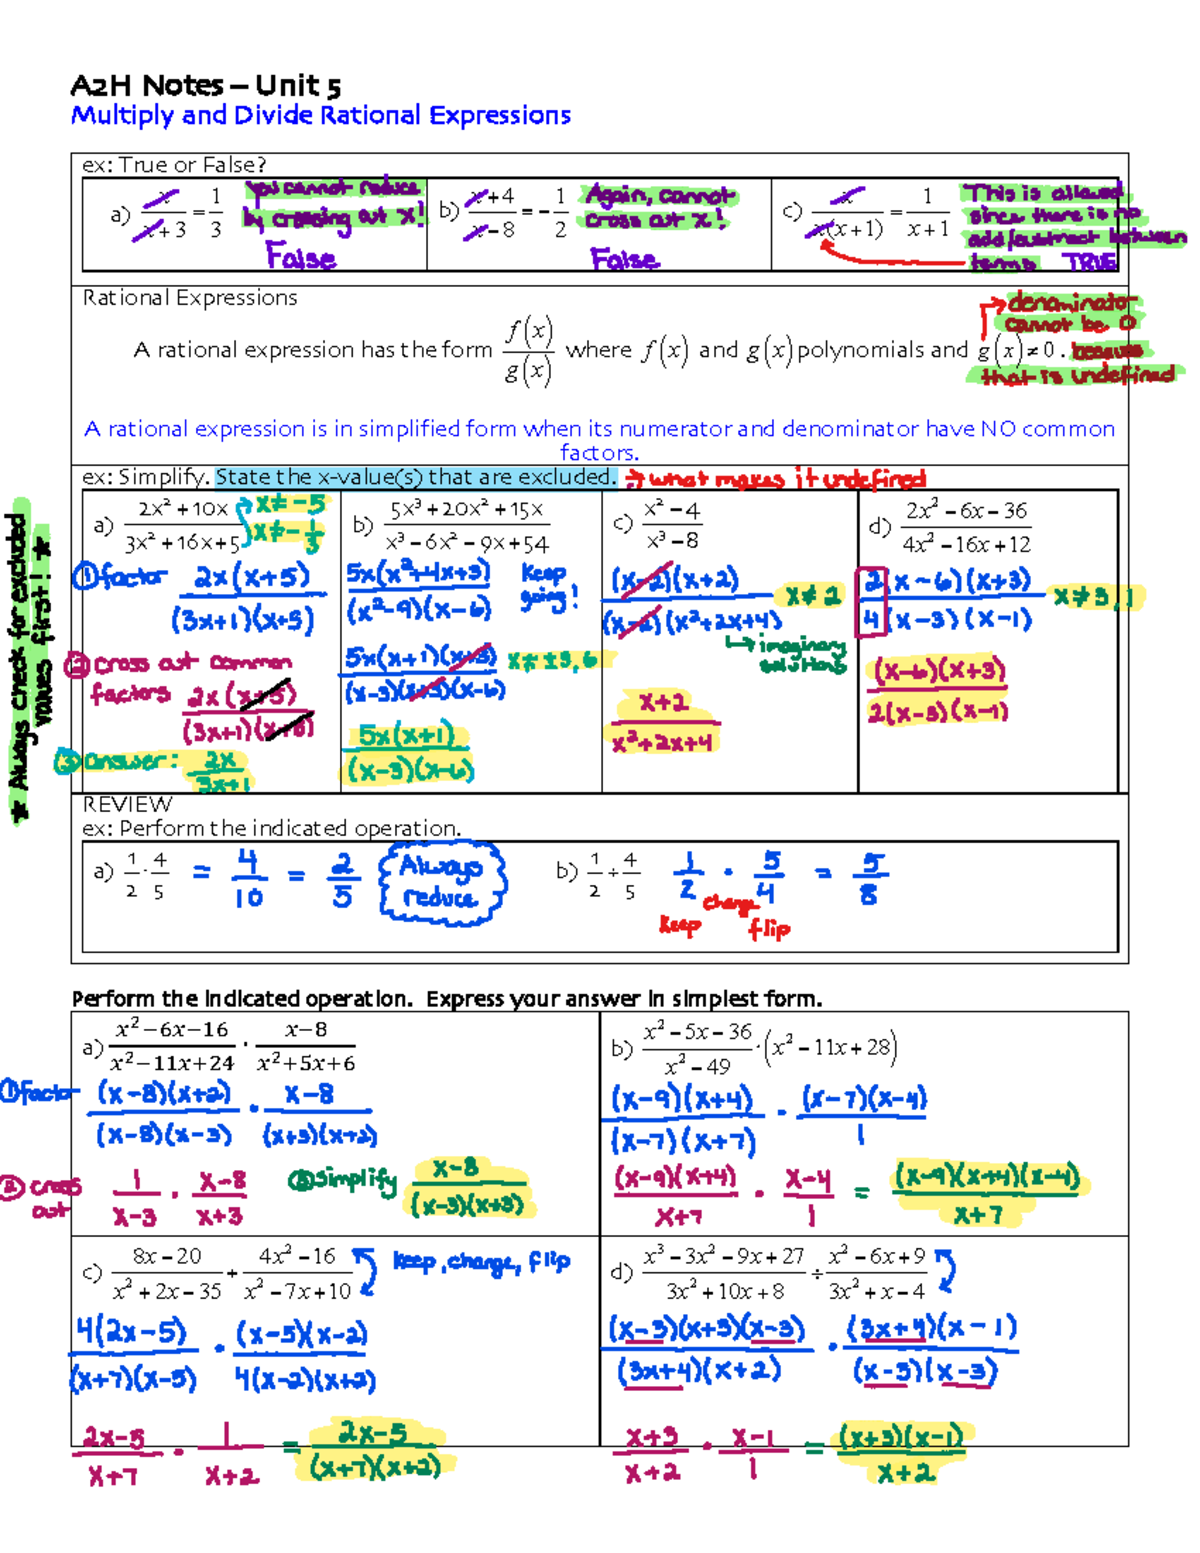 A2H Notes – Unit 5
Multiply and Divide Rational Expressions
ex: True or False?
a) x/(x+3) = 1/3 You cannot reduce by crossing out x! False
b) (x+4)/(x−8) = −1/2 Again, cannot cross out x! False
c) x/(x(x+1)) = 1/(x+1) This is allowed since there is no add/subtract between terms TRUE
Rational Expressions
denominator cannot be 0 because that is undefined
A rational expression has the form f(x)/g(x) where f(x) and g(x) polynomials and g(x) ≠ 0.
A rational expression is in simplified form when its numerator and denominator have NO common
factors.
ex: Simplify. State the x-value(s) that are excluded. → what makes it undefined
★ Always check for excluded values first! ★
a) (2x² + 10x)/(3x² + 16x + 5) x ≠ −5 x ≠ −1/3
① factor 2x(x+5)/((3x+1)(x+5))
② cross out common factors 2x(x+5)/((3x+1)(x+5))
③ answer: 2x/(3x+1)
b) (5x³ + 20x² + 15x)/(x³ − 6x² − 9x + 54)
5x(x²+4x+3)/((x²−9)(x−6)) keep going!
5x(x+1)(x+3)/((x−3)(x+3)(x−6)) x ≠ ±3, 6
5x(x+1)/((x−3)(x−6))
c) (x² − 4)/(x³ − 8)
(x−2)(x+2)/((x−2)(x²+2x+4)) x ≠ 2
↳ imaginary solutions
(x+2)/(x²+2x+4)
d) (2x² − 6x − 36)/(4x² − 16x + 12)
2(x−6)(x+3)/(4(x−3)(x−1)) x ≠ 3, 1
(x−6)(x+3)/(2(x−3)(x−1))
REVIEW
ex: Perform the indicated operation.
a) 1/2 · 4/5 = 4/10 = 2/5 Always reduce
b) 1/2 ÷ 4/5 1/2 · 5/4 = 5/8
keep change flip
Perform the indicated operation. Express your answer in simplest form.
a) (x²−6x−16)/(x²−11x+24) · (x−8)/(x²+5x+6)
① factor (x−8)(x+2)/((x−8)(x−3)) · (x−8)/((x+3)(x+2))
② cross out 1/(x−3) · (x−8)/(x+3) ③ simplify (x−8)/((x−3)(x+3))
b) (x² − 5x − 36)/(x² − 49) · (x² − 11x + 28)
(x−9)(x+4)/((x−7)(x+7)) · (x−7)(x−4)/1
(x−9)(x+4)/(x+7) · (x−4)/1 = (x−9)(x+4)(x−4)/(x+7)
c) (8x − 20)/(x² + 2x − 35) ÷ (4x² − 16)/(x² − 7x + 10) keep, change, flip
4(2x−5)/((x+7)(x−5)) · (x−5)(x−2)/(4(x−2)(x+2))
(2x−5)/(x+7) · 1/(x+2) = (2x−5)/((x+7)(x+2))
d) (x³ − 3x² − 9x + 27)/(3x² + 10x + 8) ÷ (x² − 6x + 9)/(3x² + x − 4)
(x−3)(x+3)(x−3)/((3x+4)(x+2)) · (3x+4)(x−1)/((x−3)(x−3))
(x+3)/(x+2) · (x−1)/1 = (x+3)(x−1)/(x+2)